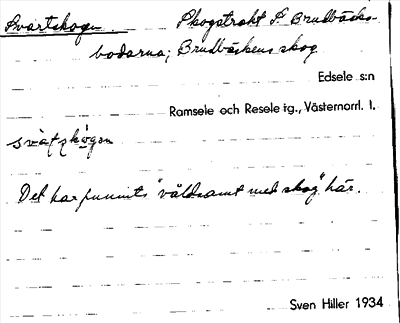 Svartskogen. Skogstrakt S Brudbäcks-
bodarna; Brudbäckens skog
Edsele s:n
Ramsele och Resele tg., Västernorrl. l.
Det har funnits "våldsamt med skog" här.
Sven Hiller 1934